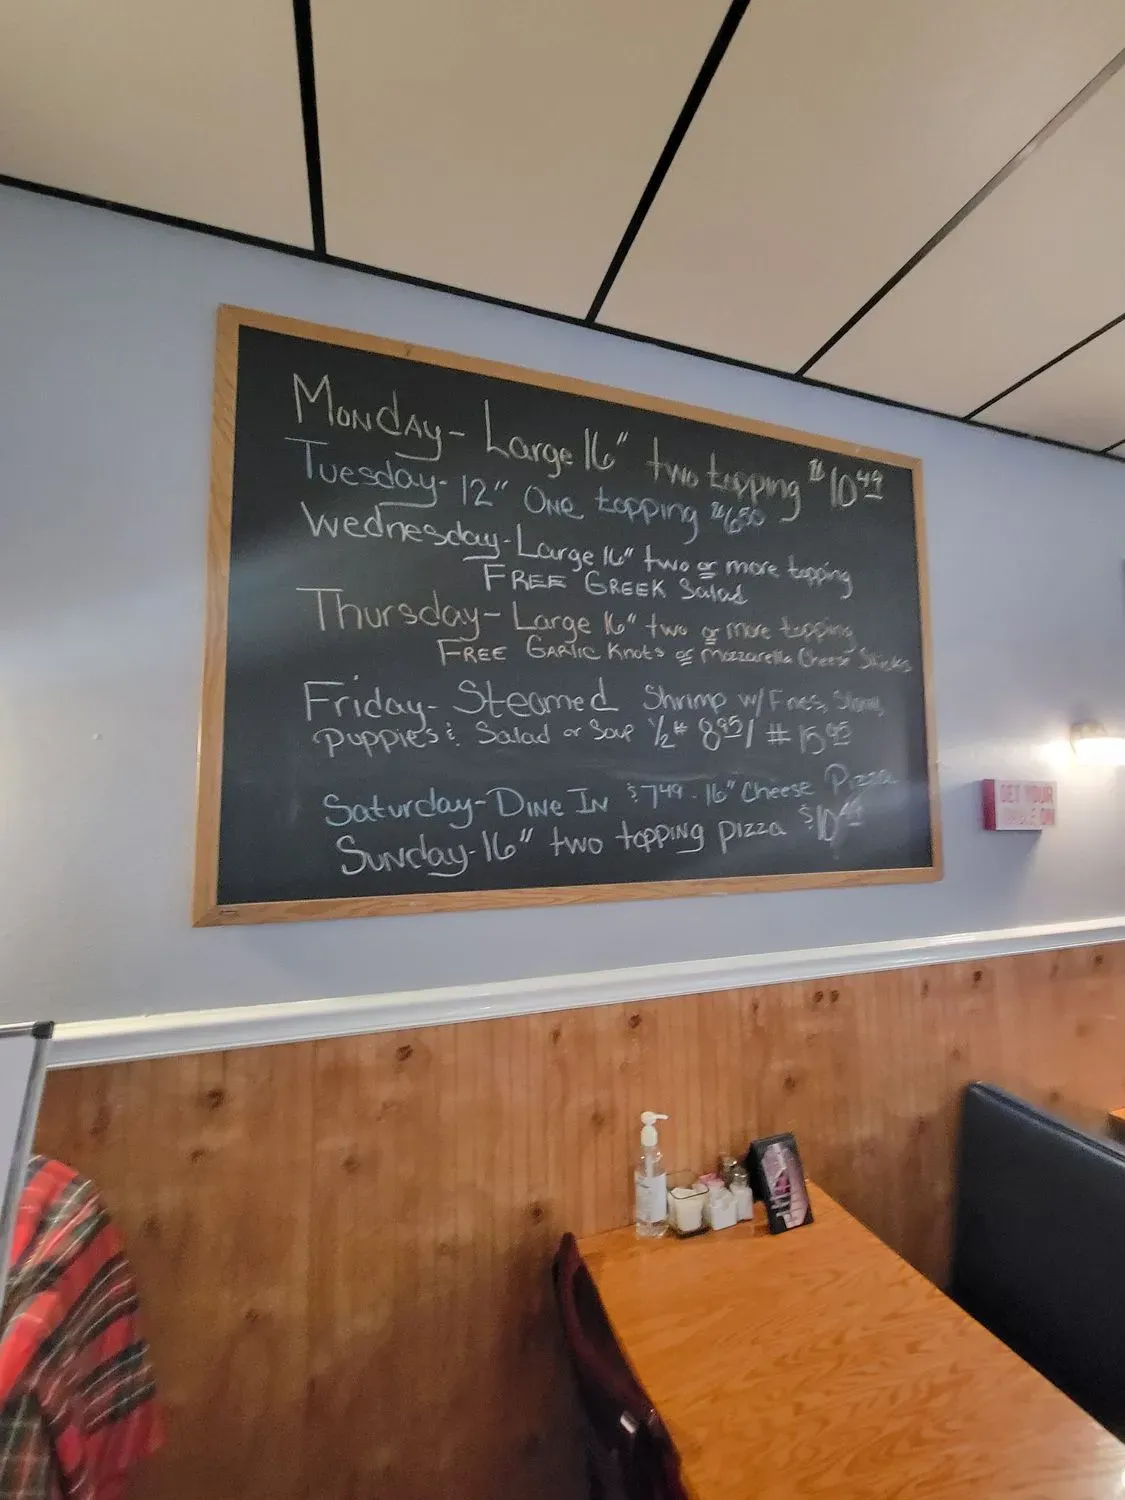 Monday- Large 16" two topping $10.49
Tuesday- 12" One topping $6.50
Wednesday- Large 16" two or more topping
FREE GREEK Salad
Thursday- Large 16" two or more topping
FREE GARLIC Knots or Mozzarella Cheese Sticks
Friday- Steamed Shrimp w/ Fries, Slaw,
puppie's & Salad or Soup 1/2# 8.95/ # 15.95
Saturday- DINE IN $7.49 - 16" Cheese Pizza
Sunday- 16" two topping pizza $10.49
GET YOUR
ON